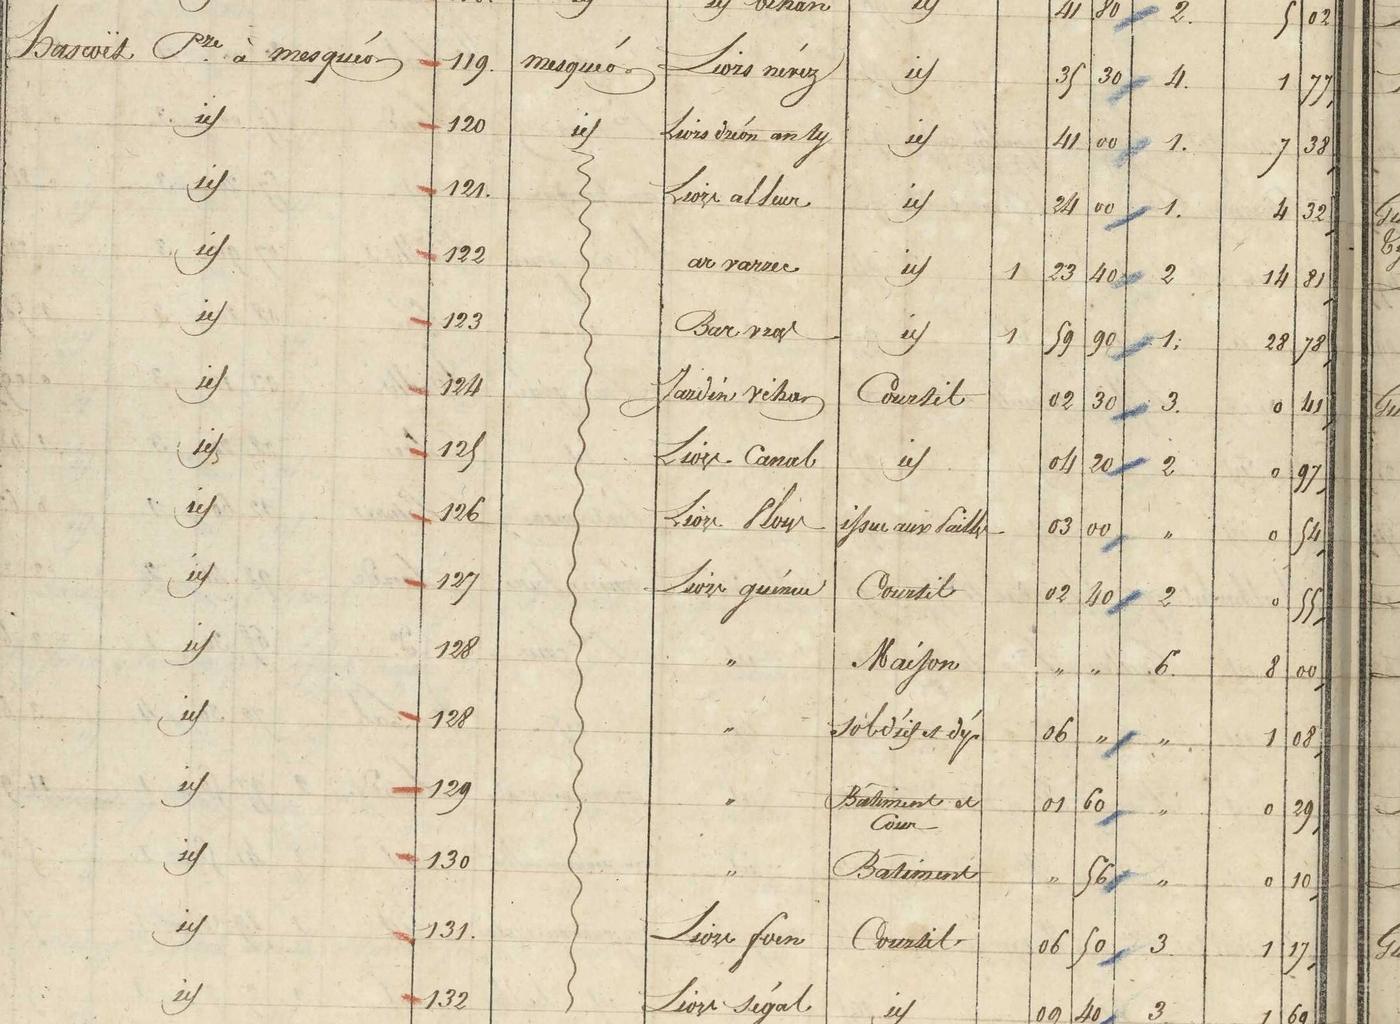 id bihan id 41 80 2. 5 02
hascoët Pre à mesquéo 119. mesquéo Liors névez id 35 30 4. 1 77
id 120 id Liors dréon an ty id 41 00 1. 7 38
id 121. Liors al leur id 24 00 1. 4 32
id 122 ar varrec id 1 23 40 2 14 81
id 123 Bar vras id 1 59 90 1. 28 78
id 124 Jardin vihan Courtil 02 30 3. 0 41
id 125 Liors Canab id 04 20 2 0 97
id 126 Liors Plouz issue aux Pailles 03 00 " 0 54
id 127 Liors Courtil 02 40 2 0 55
id 128 " Maison " " 6. 8 00
id 128 " sol d'id et dép 06 " " 1 08
id 129 " Bâtiment et 01 60 " 0 29
Cour
id 130 " Bâtiment " 56 " 0 10
id 131. Liors foen Courtil 06 50 3 1 17
id 132 Liors ségal id 09 40 3 1 69